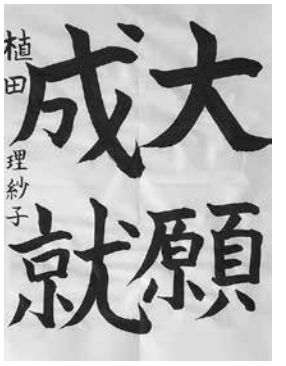 大願
成就
植田 理紗子